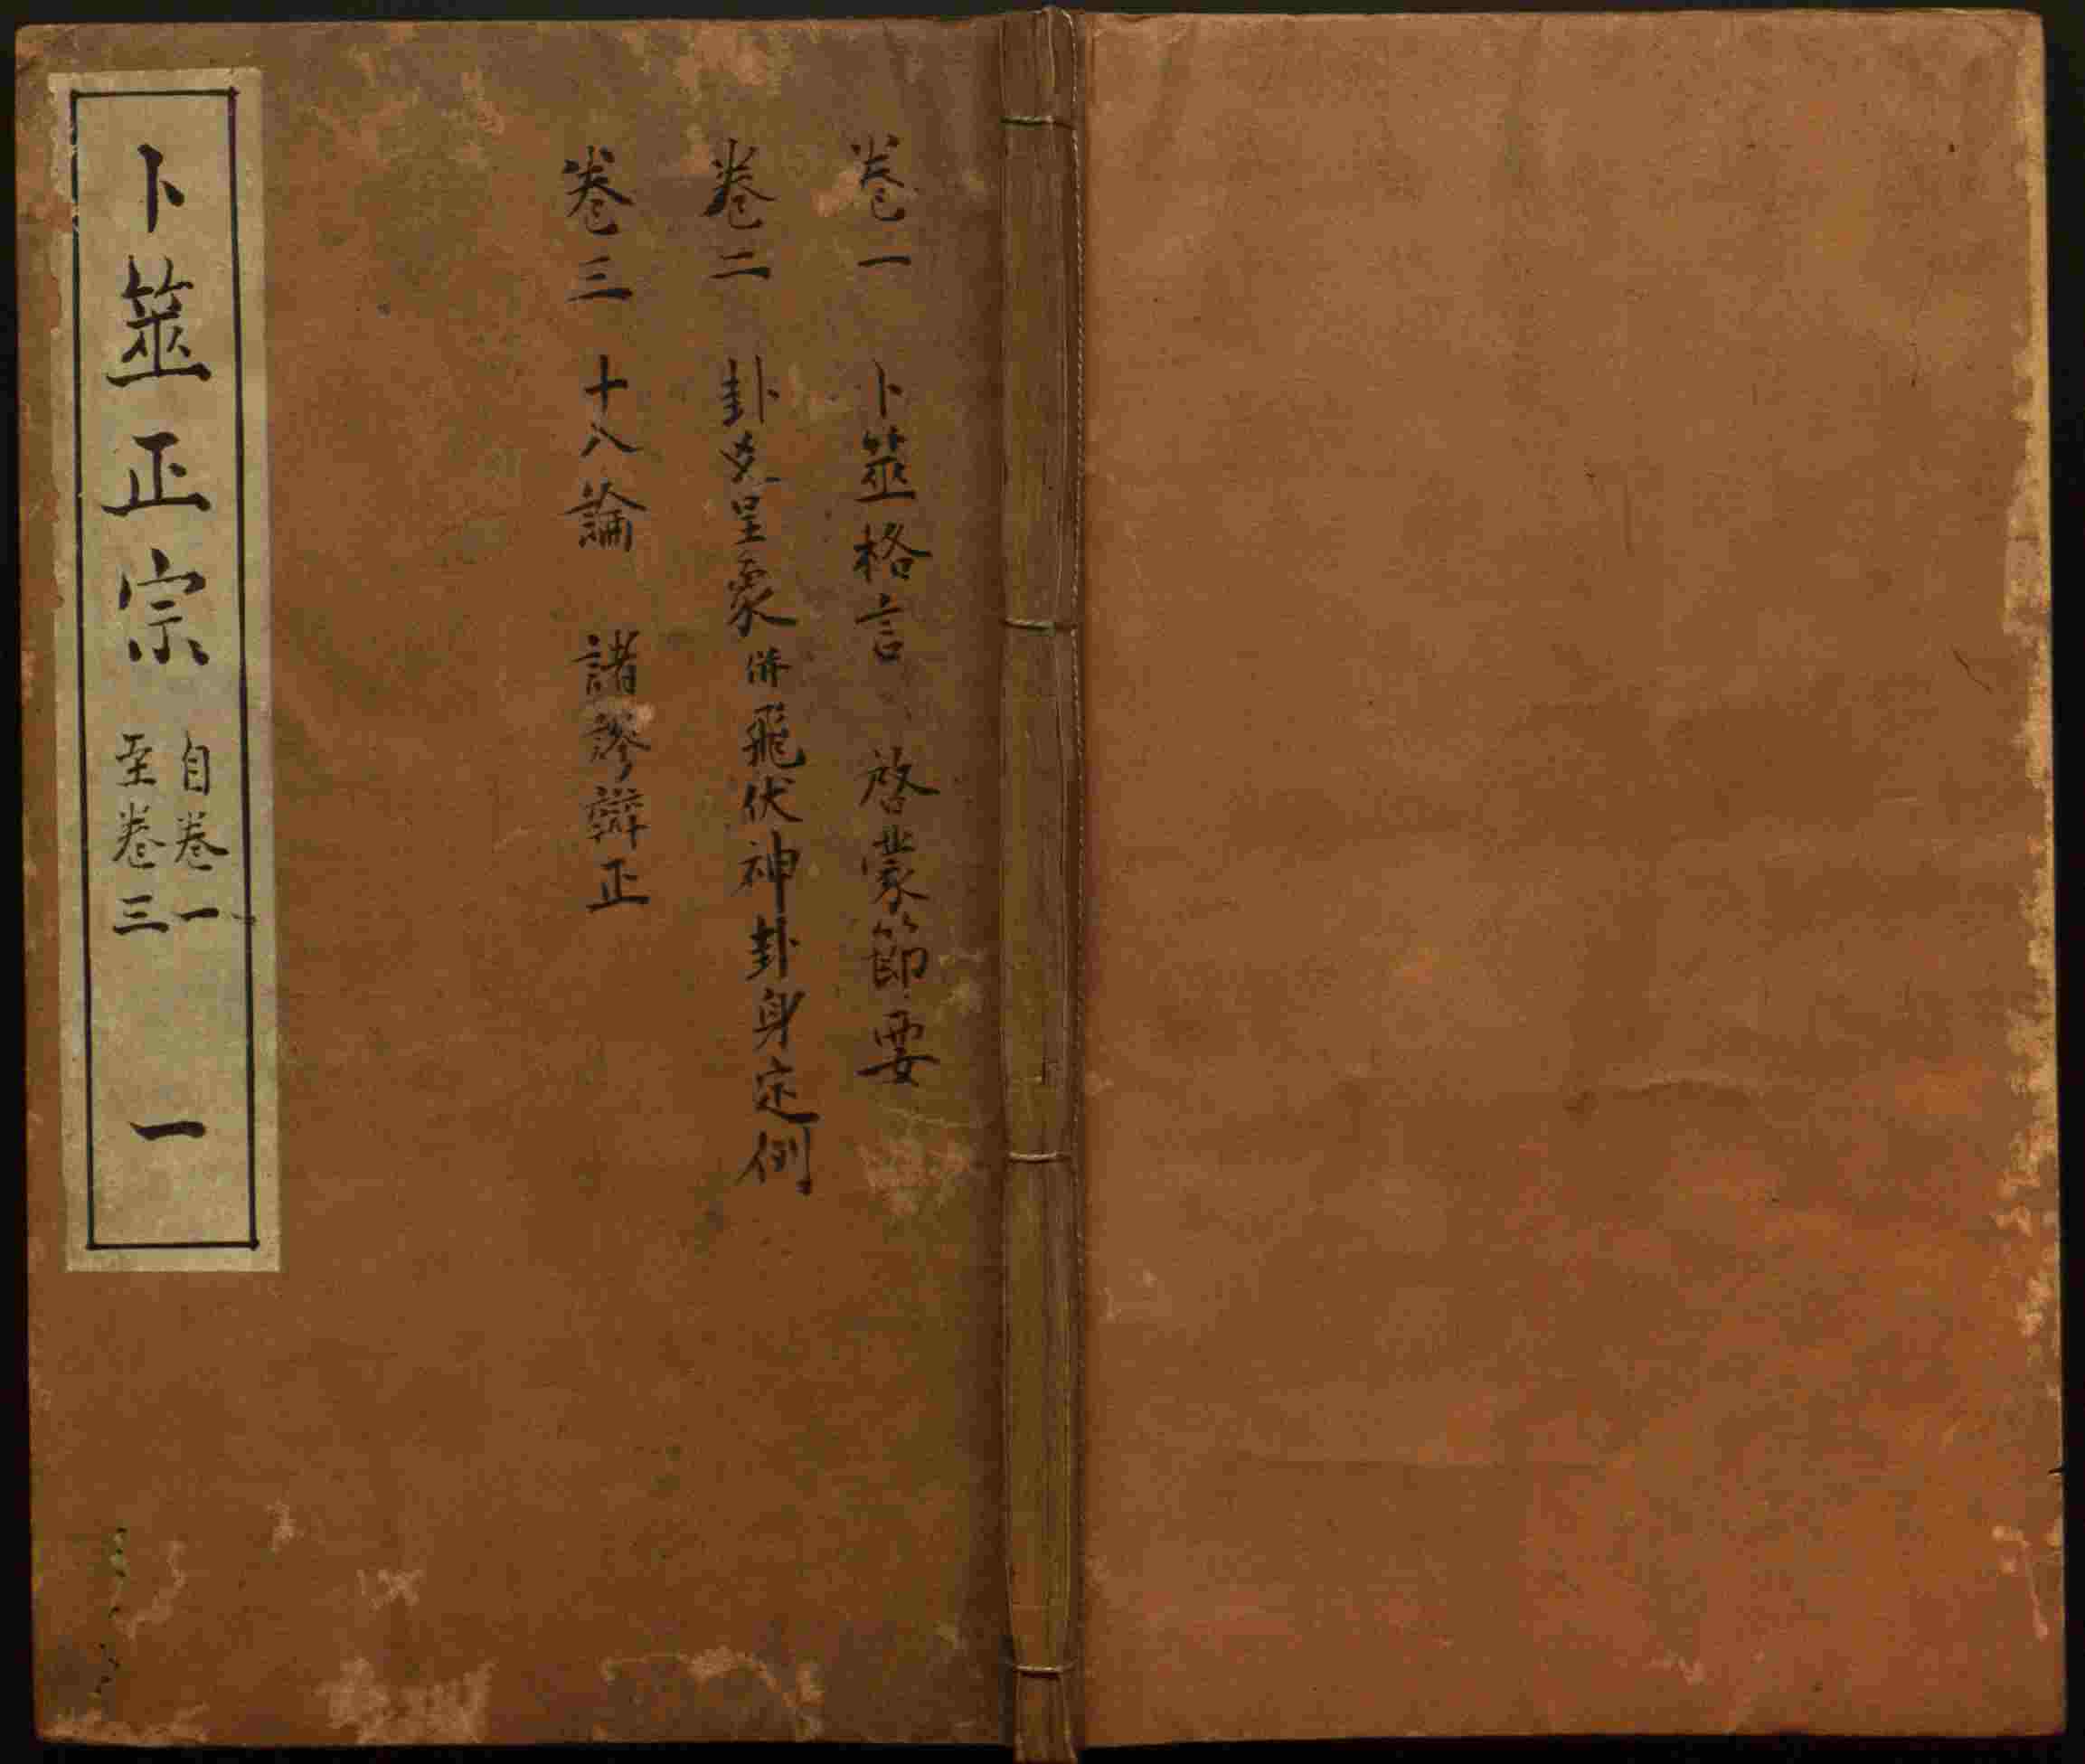 卷一 卜筮格言 啓蒙節要
卷二 卦爻呈象併飛伏神卦身定例
卷三 十八論 諸謬辨正
卜筮正宗
自卷一
至卷三
一